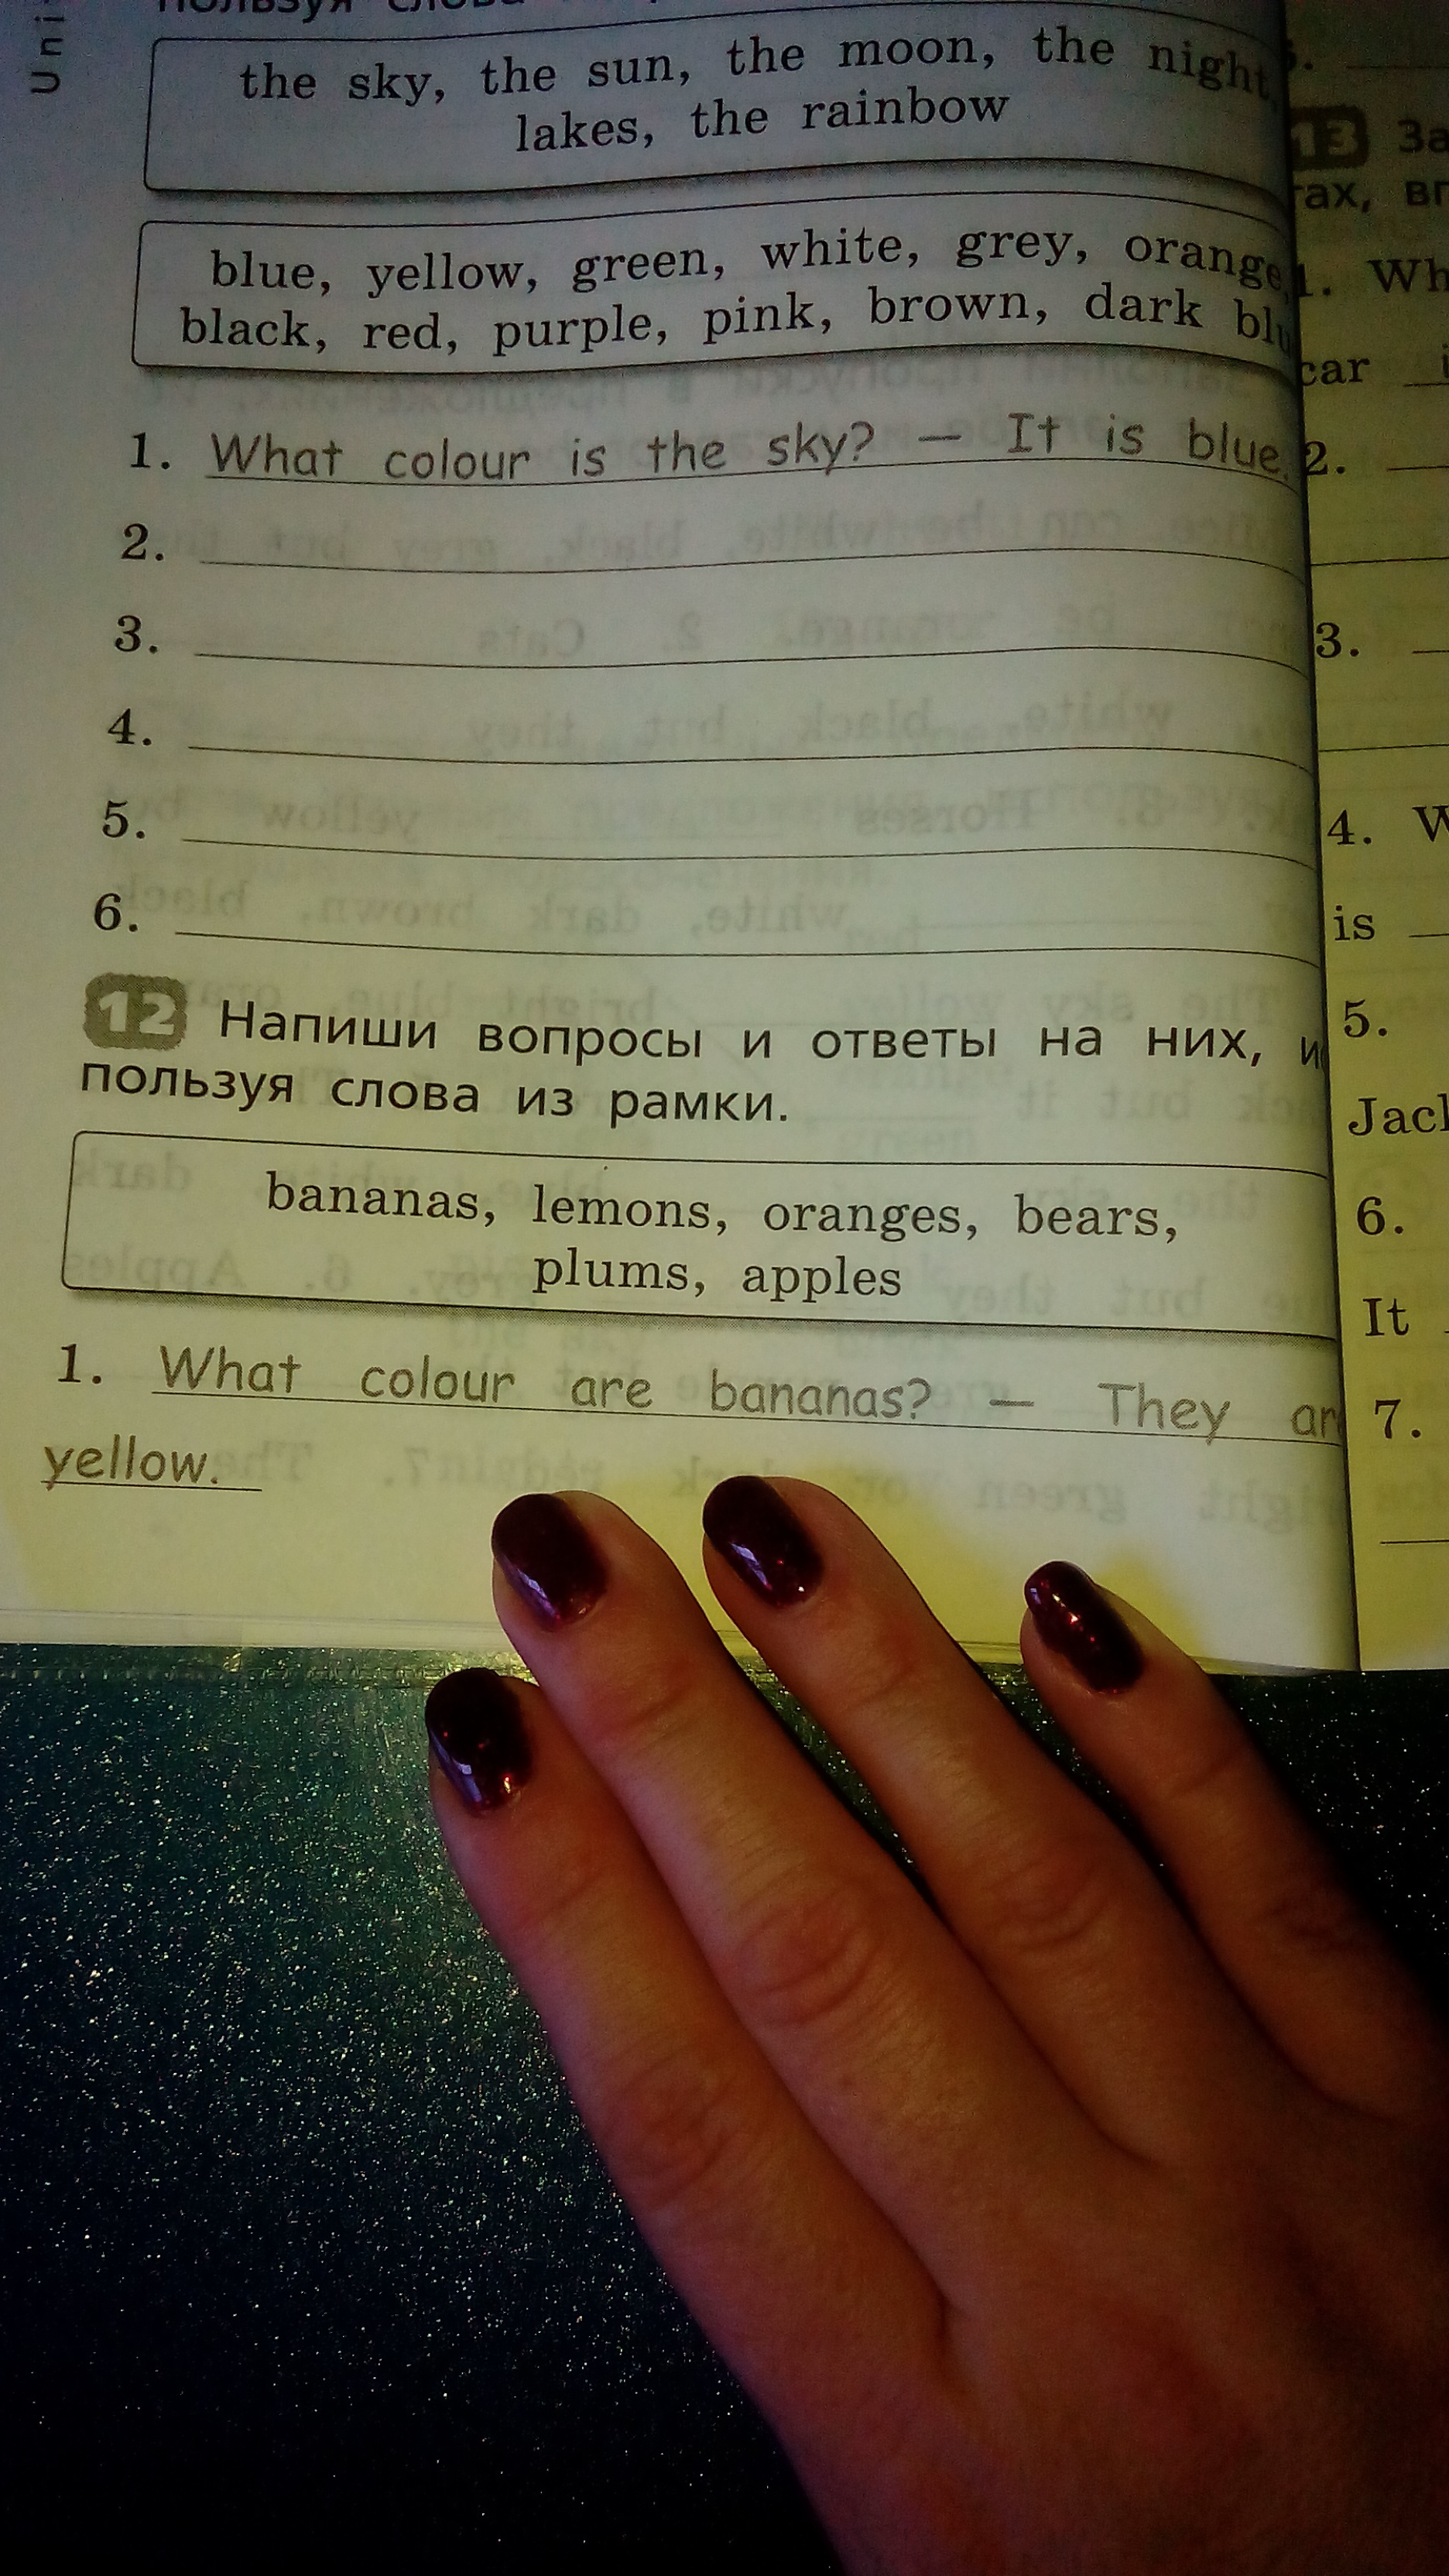 Uni
пользуя слова
the sky, the sun, the moon, the night,
lakes, the rainbow
blue, yellow, green, white, grey, orange,
black, red, purple, pink, brown, dark blu
1. What colour is the sky? — It is blue.
2.
3.
4.
5.
6.
12 Напиши вопросы и ответы на них, и
пользуя слова из рамки.
bananas, lemons, oranges, bears,
plums, apples
1. What colour are bananas? — They ar
yellow.
13 За
тах, вп
1. Wh
car i
2.
3.
4. W
is
5.
Jack
6.
It
7.